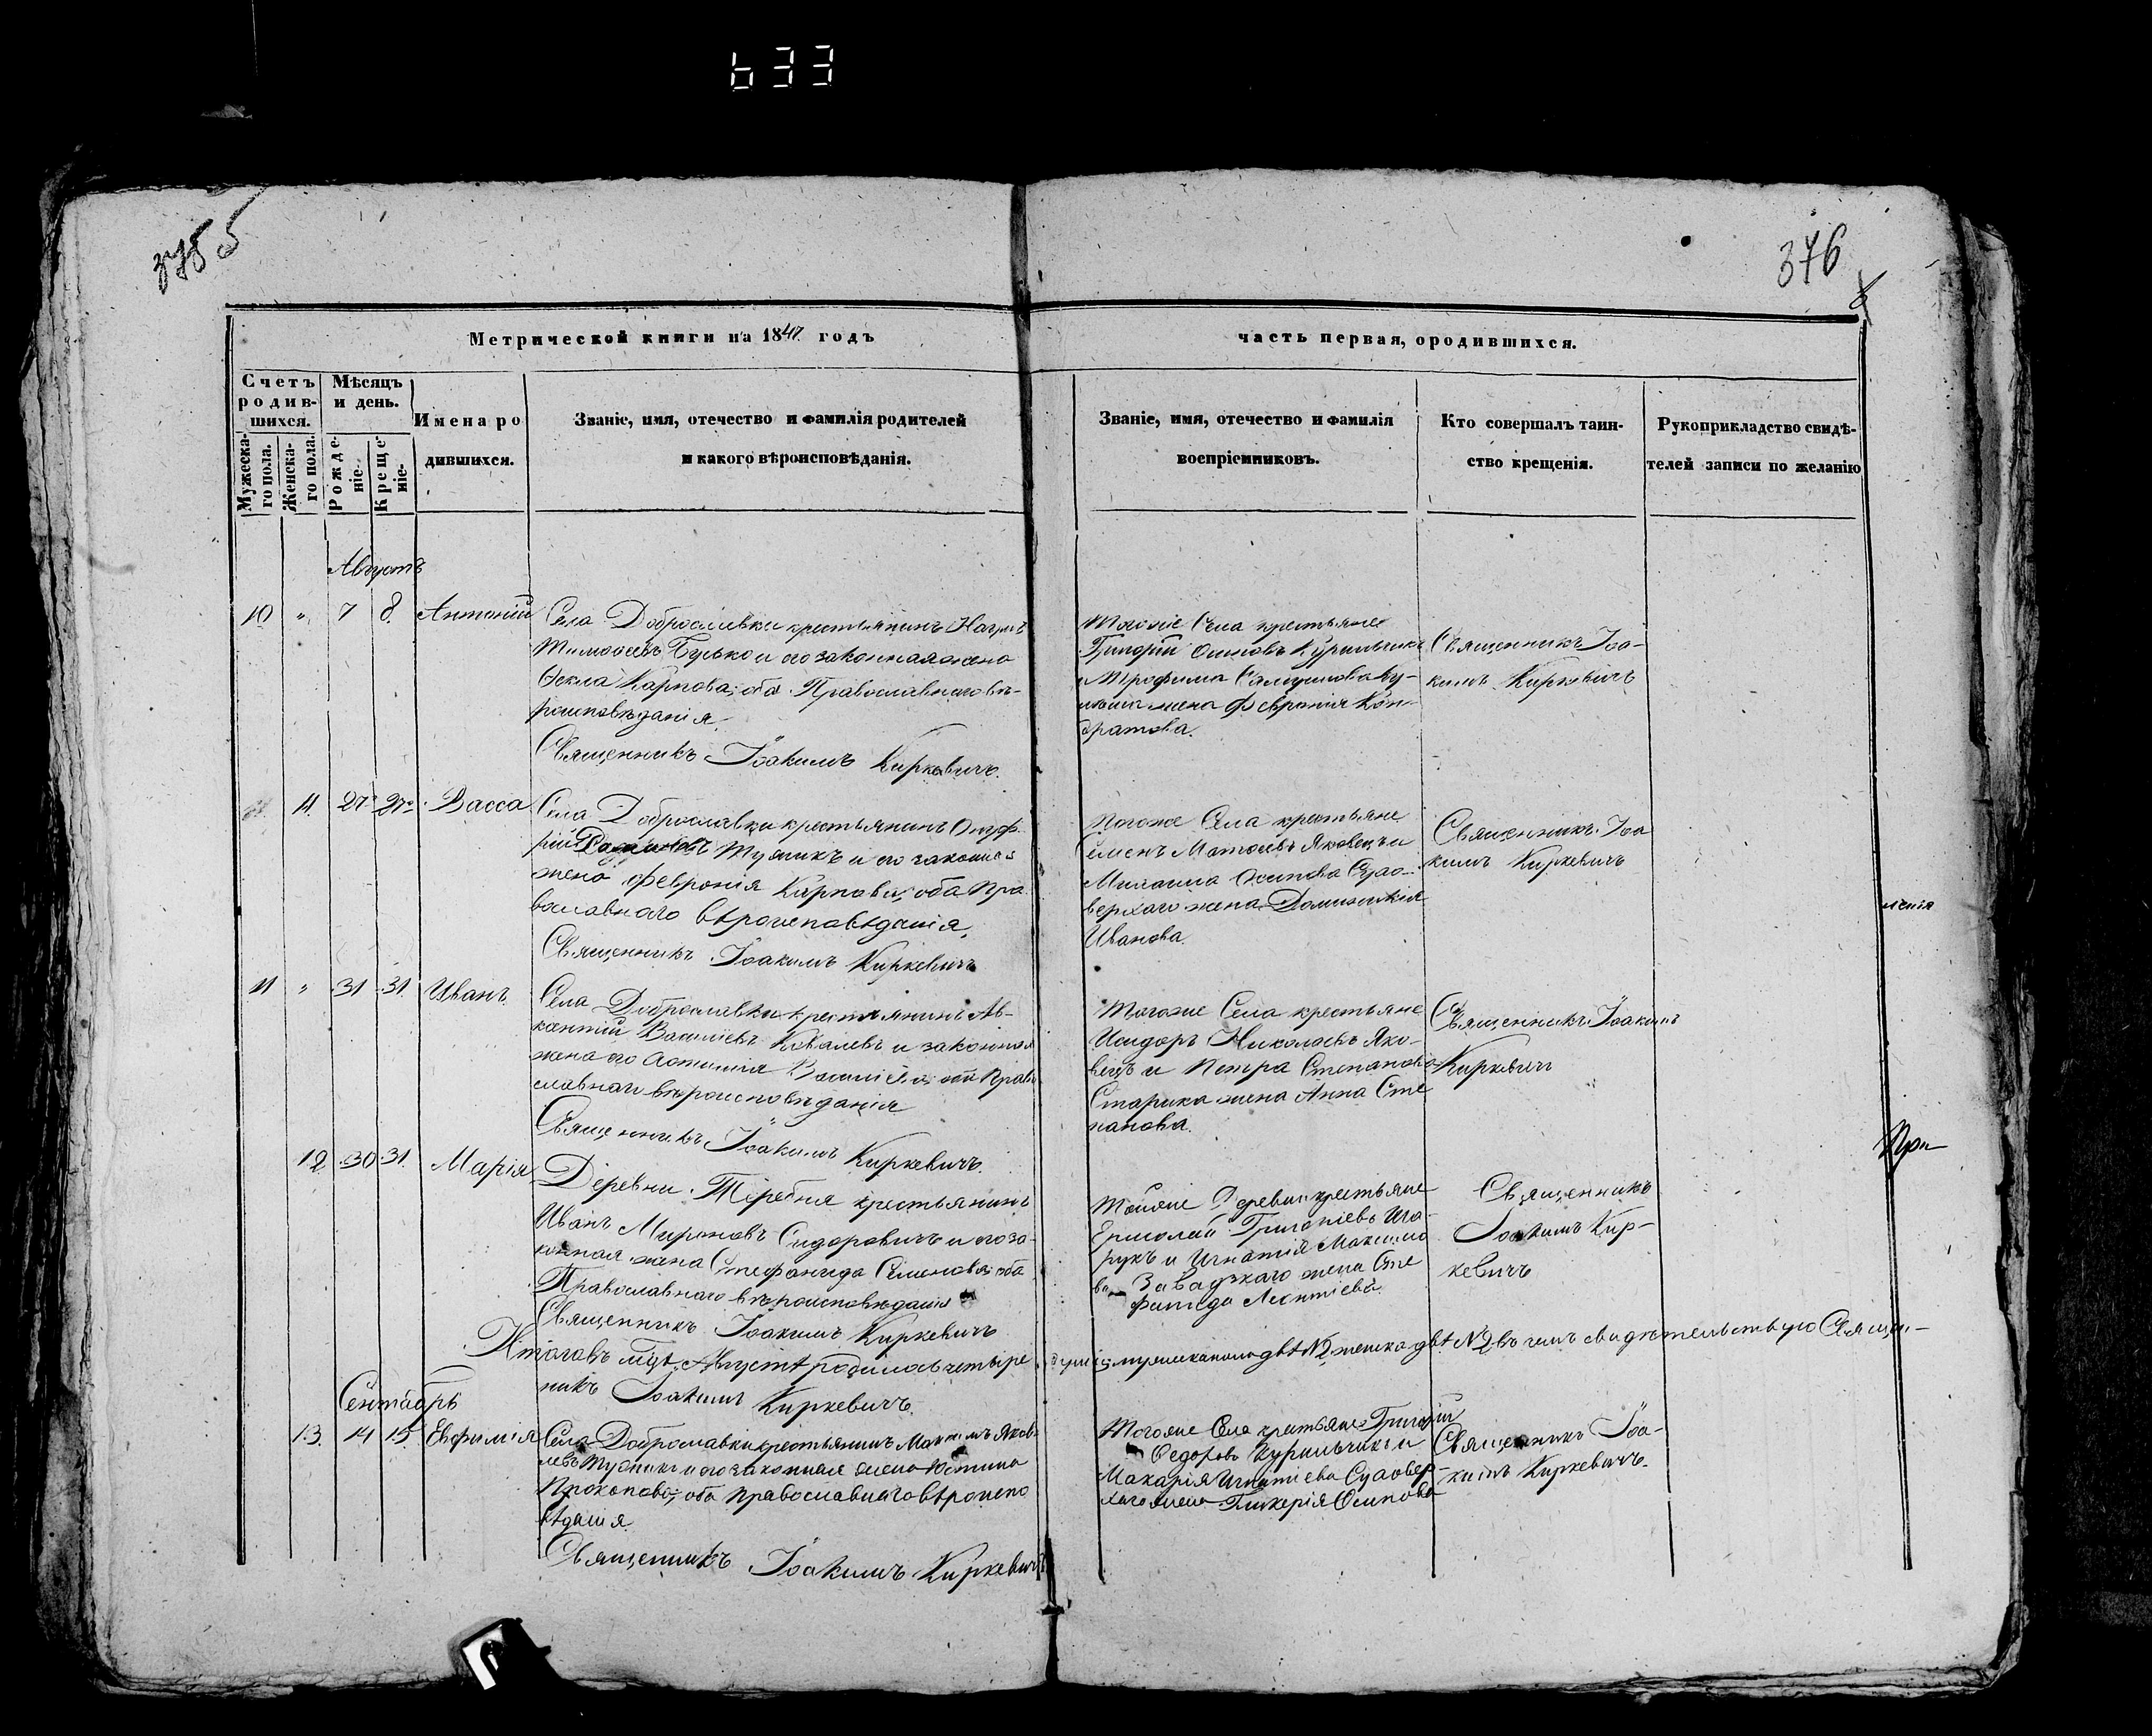 633
375
376
Метрической книги на 1847 годъ
часть первая, о родившихся.
Счетъ родив-
шихся.
Мѣсяцъ
и день.
Мужеска-
го пола.
Женска-
го пола.
Рожде-
ніе.
Креще-
ніе.
Имена ро
дившихся.
Званіе, имя, отечество и фамилія родителей
и какого вѣроисповѣданія.
Званіе, имя, отечество и фамилія
воспріемниковъ.
Кто совершалъ таин-
ство крещенія.
Рукоприкладство свидѣ-
телей записи по желанію
Августъ
10 " 7 8 Антоній
Села Доброславки крестьянинъ
Тимоѳеевъ Бусько и его законная жена
Ѳекла Карпова, оба Православнаго вѣ-
роисповѣданія.
Священникъ Іоакимъ Киркевичъ.
Тогоже Села крестьяне
Григорій Осиповъ Курильчикъ
и Трофима
жена Февронія Кон-
дратова.
Священникъ Іоа-
кимъ Киркевичъ
11 27 27 Васса
Села Доброславки крестьянинъ Онуф-
рій и его законная
жена Февронія Карпова, оба Пра
вославнаго вѣроисповѣданія.
Священникъ Іоакимъ Киркевичъ
Тогоже Села крестьяне
Семенъ Матвѣевъ Яковецъ и
Михаила Осипова
жена Домникія
Иванова.
Священникъ Іоа
кимъ Киркевичъ
11 " 31 31 Иванъ
Села Доброславки крестьянинъ Ав-
Василіевъ Ковалевъ и законная
жена его Васильева, оба Право
славнаго вѣроисповѣданія
Священникъ Іоакимъ Киркевичъ.
Тогоже Села крестьяне
Исидоръ Николаевъ Яко-
вецъ и Петра Степанова
Старика жена Анна Сте
панова.
Священникъ Іоакимъ
Киркевичъ
12 30 31 Марія
Деревни Теребня крестьянинъ
Иванъ Мироновъ Сидоровичъ и его за-
конная жена Стефанида Семенова, оба
Православнаго вѣроисповѣданія
Священникъ Іоакимъ Киркевичъ
Тойже Деревни крестьяне
Ермолай Григоріевъ
и Игнатія Максимо
ва Завадзкаго жена Сте
фанида Леонтіева.
Священникъ
Іоакимъ Кир-
кевичъ
Итого въ мцѣ Августѣ родилось четыре
души мужеска пола двѣ №2 женска двѣ №2 въ чемъ свидѣтельствую Священ-
никъ Іоакимъ Киркевичъ.
Сентябрь
13 14 15 Евфимія
Села Доброславки крестьянинъ Максимъ Яков-
левъ и его законная жена Юстина
Прокопова, оба Православнаго вѣроиспо
вѣданія.
Священникъ Іоакимъ Киркевичъ
Тогоже Села крестьяне Григорій
Ѳедоровъ Курильчикъ и
Макарія Игнатіева
жена Гликерія Осипова
Священникъ Іоа-
кимъ Киркевичъ.